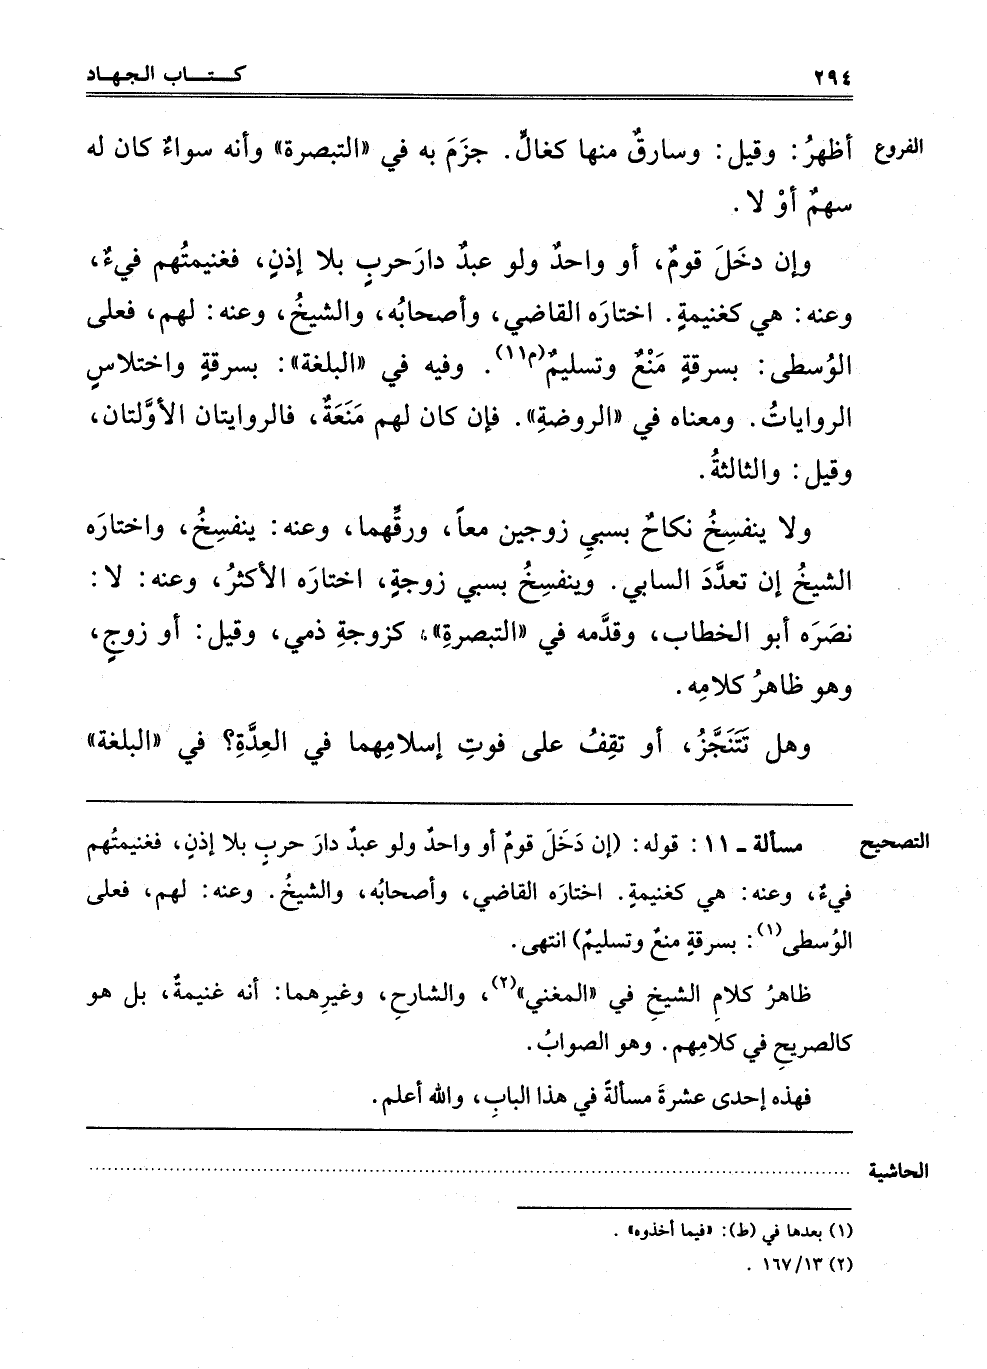 ٢٩٤
كتاب الجهاد
الفروع
أظهرُ: وقيل: وسارقٌ منها كغالٍّ. جزَمَ به في «التبصرة» وأنه سواءٌ كان له
سهمٌ أوْ لا.
وإن دخَلَ قومٌ، أو واحدٌ ولو عبدٌ دارَ حربٍ بلا إذنٍ، فغنيمتُهم فيءٌ،
وعنه: هي كغنيمةٍ. اختارَه القاضي، وأصحابُه، والشيخُ، وعنه: لهم، فعلى
الوُسطى: بسرقةٍ مَنْعٌ وتسليمٌ(م١١). وفيه في «البلغة»: بسرقةٍ واختلاسٍ
الرواياتُ. ومعناه في «الروضةِ». فإن كان لهم مَنَعَةٌ، فالروايتان الأوَّلتان،
وقيل: والثالثةُ.
ولا ينفسِخُ نكاحٌ بسبيِ زوجين معاً، ورقِّهما، وعنه: ينفسِخُ، واختارَه
الشيخُ إن تعدَّدَ السابي. وينفسِخُ بسبي زوجةٍ، اختارَه الأكثرُ، وعنه: لا:
نصَرَه أبو الخطاب، وقدَّمه في «التبصرةِ»، كزوجةِ ذمي، وقيل: أو زوجٍ،
وهو ظاهرُ كلامِه.
وهل تَتَنَجَّزُ، أو تقِفُ على فوتِ إسلامِهما في العِدَّةِ؟ في «البلغة»
التصحيح
مسألة ـ ١١: قوله: (إن دَخَلَ قومٌ أو واحدٌ ولو عبدٌ دارَ حربٍ بلا إذنٍ، فغنيمتُهم
فيءٌ، وعنه: هي كغنيمةٍ. اختارَه القاضي، وأصحابُه، والشيخُ. وعنه: لهم، فعلى
الوُسطى(١): بسرقةٍ منعٌ وتسليمٌ) انتهى.
ظاهرُ كلامِ الشيخِ في «المغني»(٢)، والشارحِ، وغيرِهما: أنه غنيمةٌ، بل هو
كالصريحِ في كلامِهم. وهو الصوابُ.
فهذه إحدى عشرةَ مسألةً في هذا البابِ، والله أعلم.
الحاشية
(١) بعدها في (ط): «فيما أخذوه».
(٢) ١٦٧/١٣.